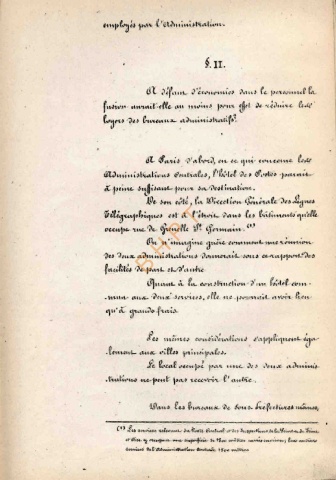 employés par l'Administration.
§. II.
A défaut d'économies dans le personnel la
fusion aurait-elle au moins pour effet de réduire les
loyers des bureaux administratifs.
A Paris d'abord, en ce qui concerne les
Administrations Centrales, l'hôtel des Postes paraît
à peine suffisant pour sa destination.
De son côté, la Direction Générale des Lignes
Télégraphiques est à l'étroit dans les bâtiments qu'elle
occupe rue de Grenelle St Germain. (1)
On n'imagine guère comment une réunion
des deux administrations donnerait sous ce rapport des
facilités de part et d'autre
Quant à la construction d'un hôtel com-
mun aux deux services, elle ne pourrait avoir lieu
qu'à grands frais.
Les mêmes considérations s'appliquent éga-
lement aux villes principales.
Le local occupé par une des deux adminis-
trations ne peut pas recevoir l'autre.
Dans les bureaux de sous-Préfectures mêmes,
(1) Les services du Poste Central et des
et
services de l'Administration Centrale 1500 mètres